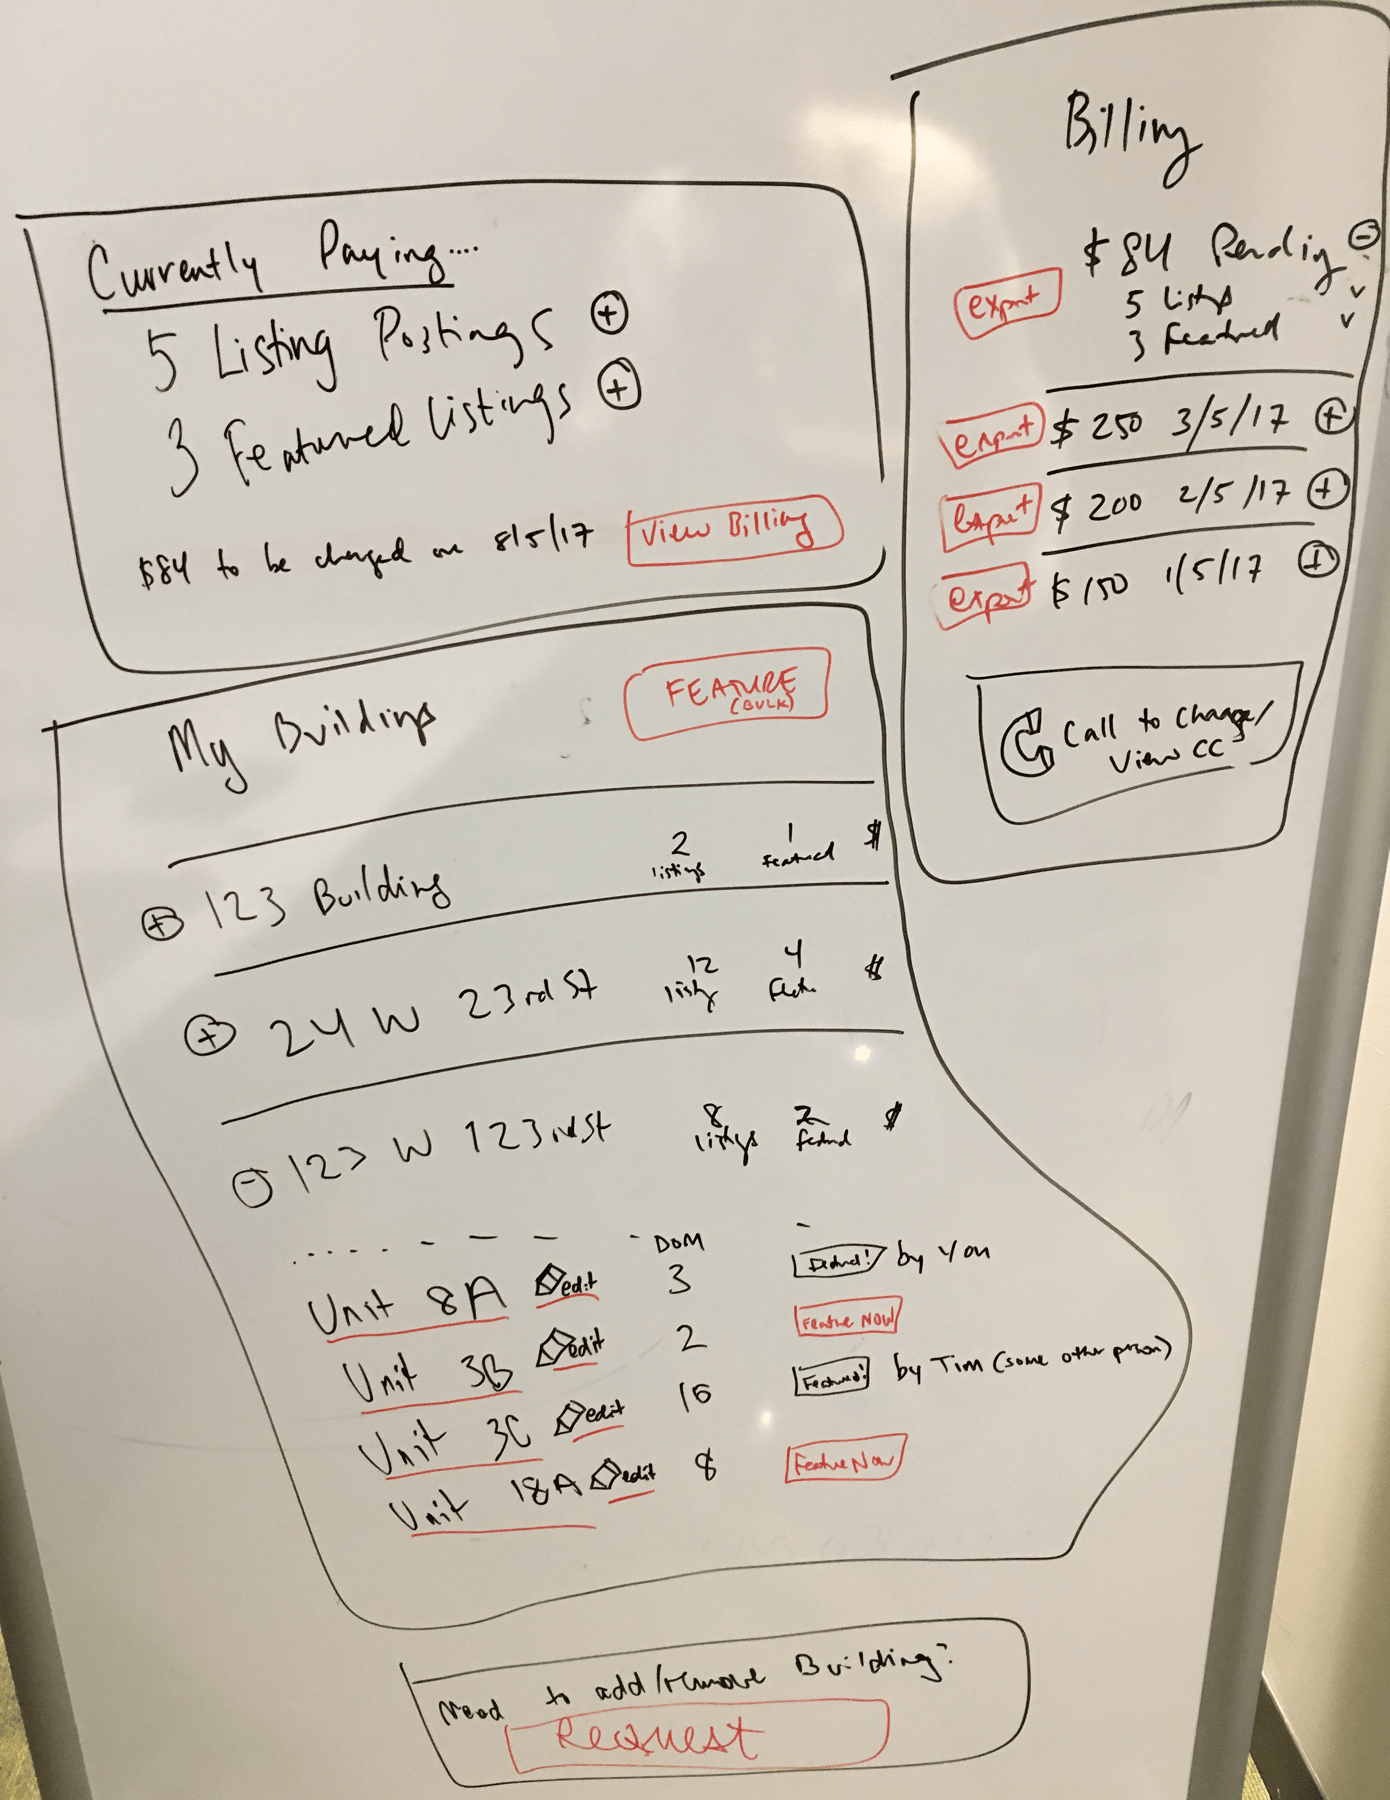 Currently Paying....
5 Listing Postings +
3 Featured Listings +
$84 to be charged on 8/5/17 View Billing
My Buildings FEATURE
(BULK)
+ 123 Building 2 listings 1 Featured $
+ 24 W 23rd St 12 listg 4 $
- 123 W 123rd St 8 listgs 2 featud $
DOM
Unit 8A edit 3 Featured! by you
Unit 3B edit 2 Feature NOW
Unit 3C edit 16 Featured! by Tim (some other person)
Unit 18A edit 8 Feature Now
Need to add/remove Building?
Request
Billing
$84 Pending -
export 5 Listgs
3 Featured
export $250 3/5/17 +
export $200 2/5/17 +
export $150 1/5/17 +
Call to change/
View CC